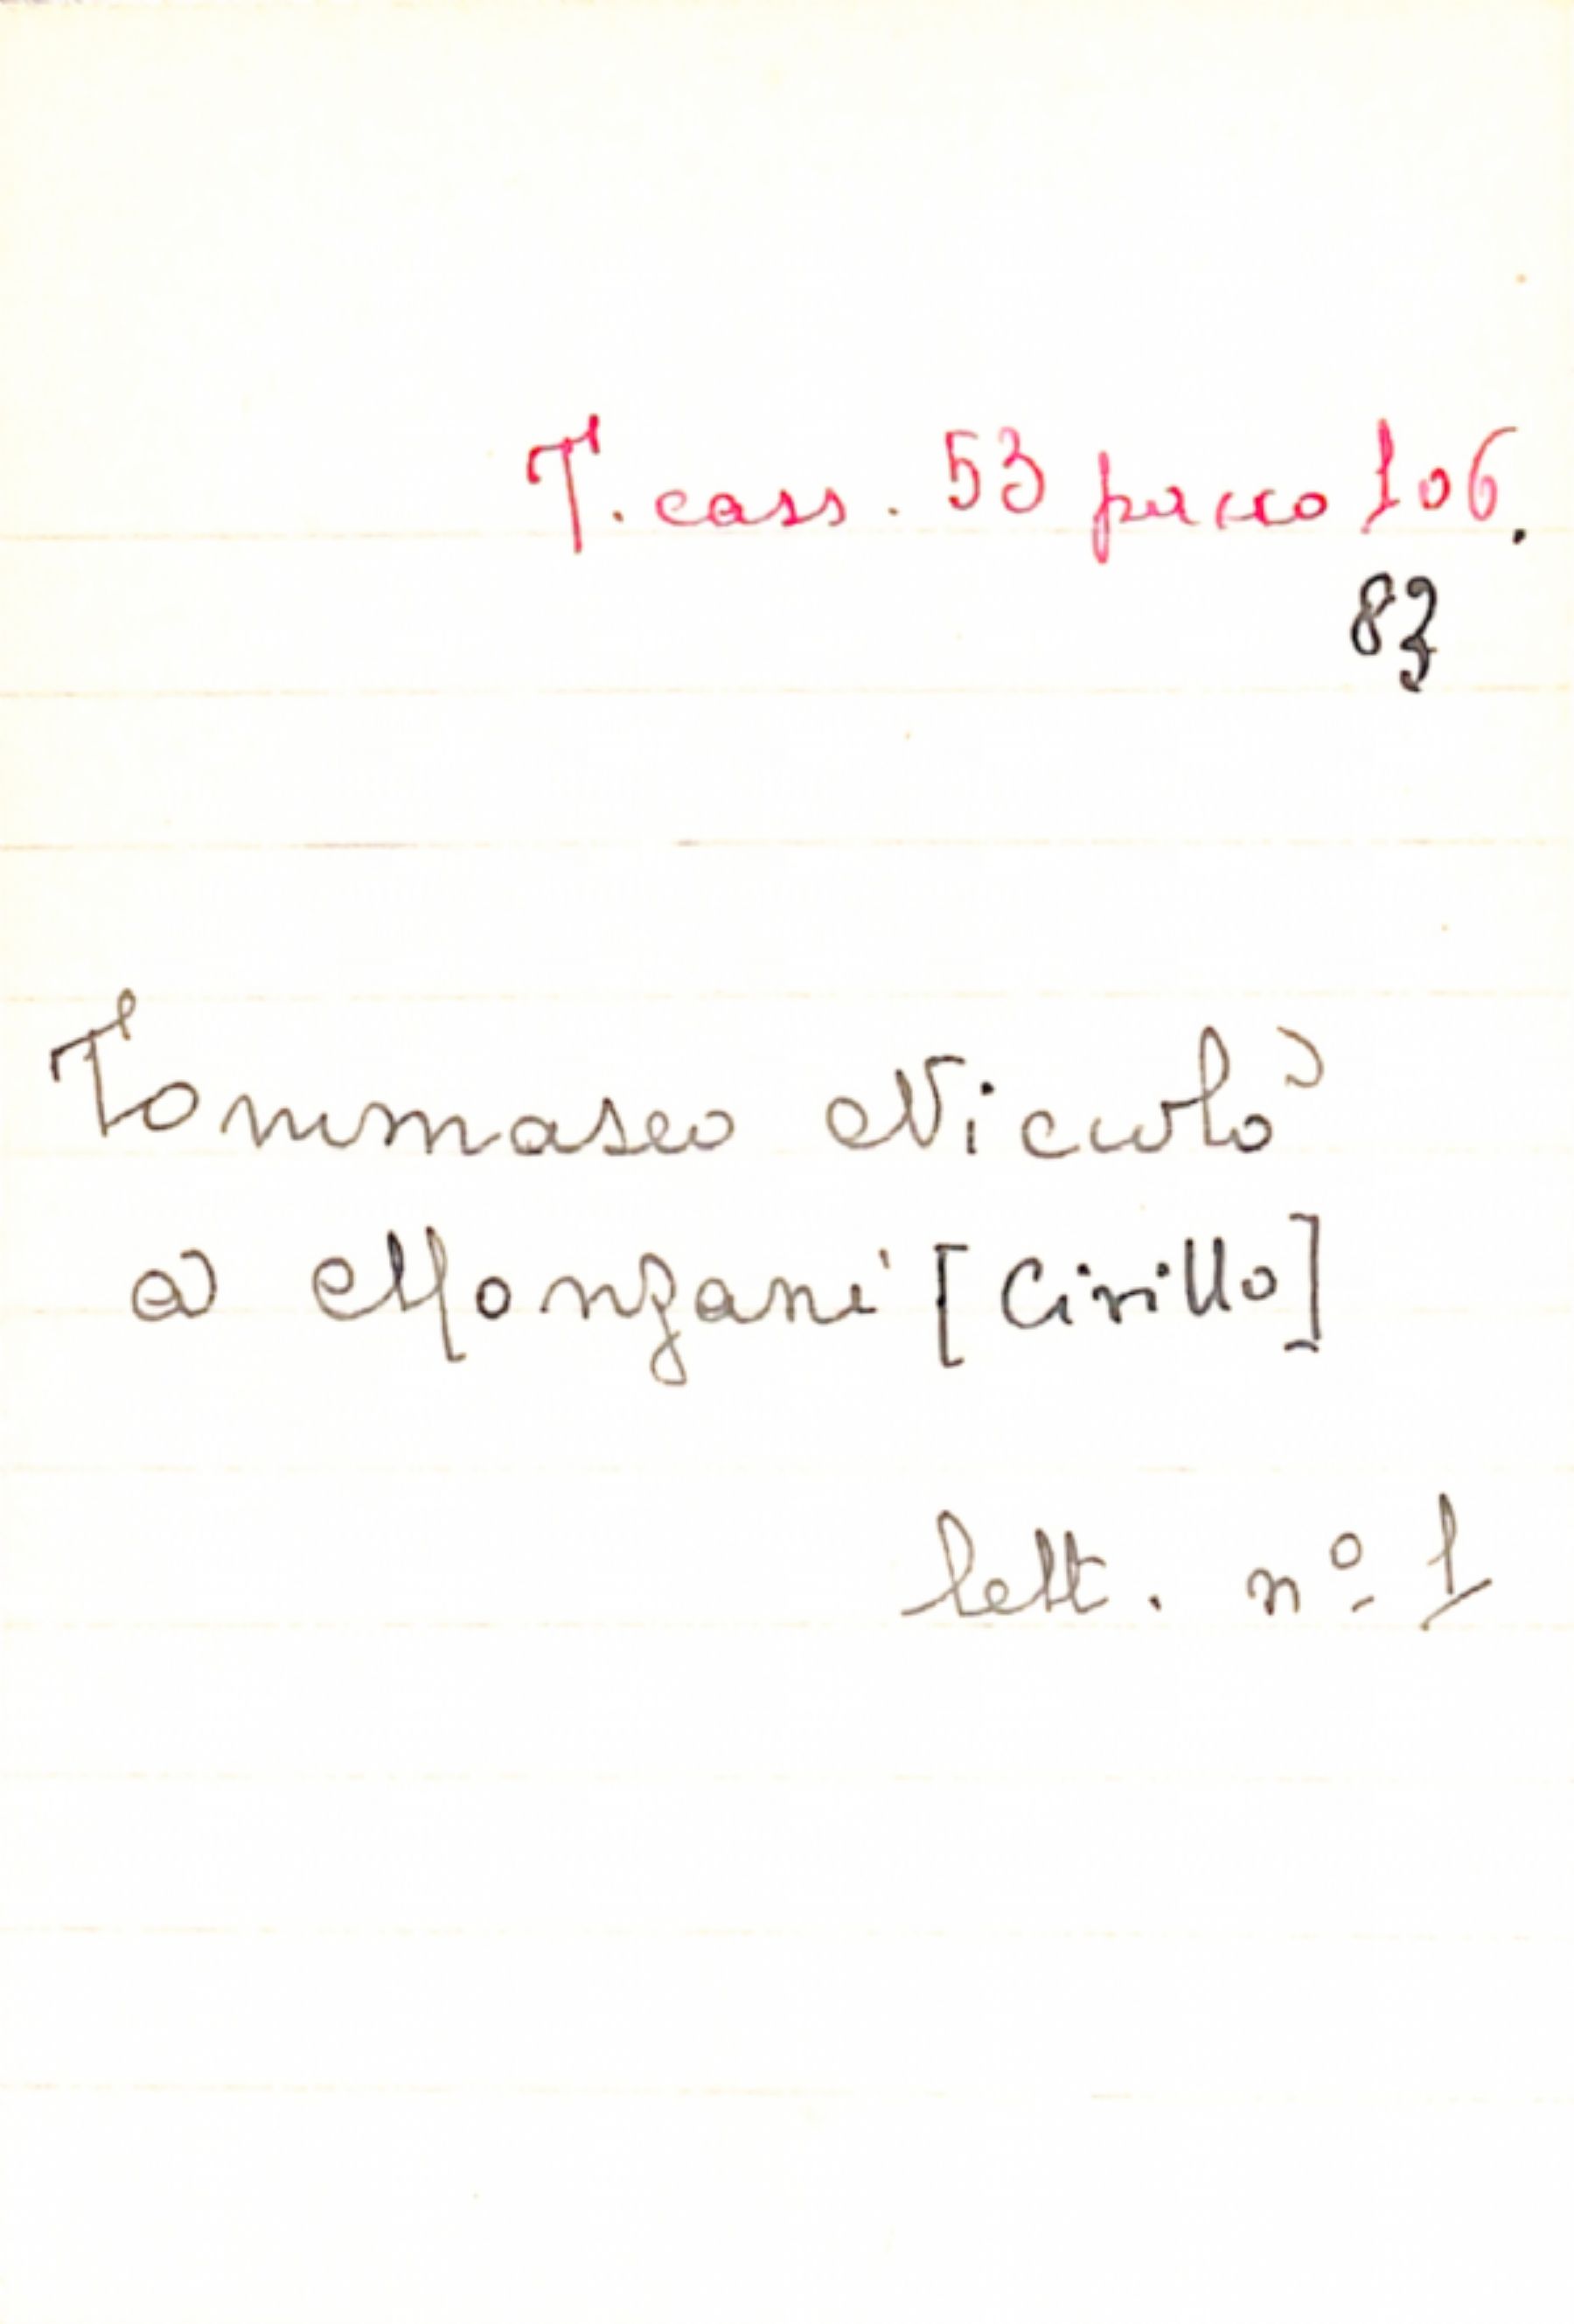 T. cass. 53 pacco 106.
83
Tommaseo Niccolò
a Monzani [Cirillo]
lett. nº 1